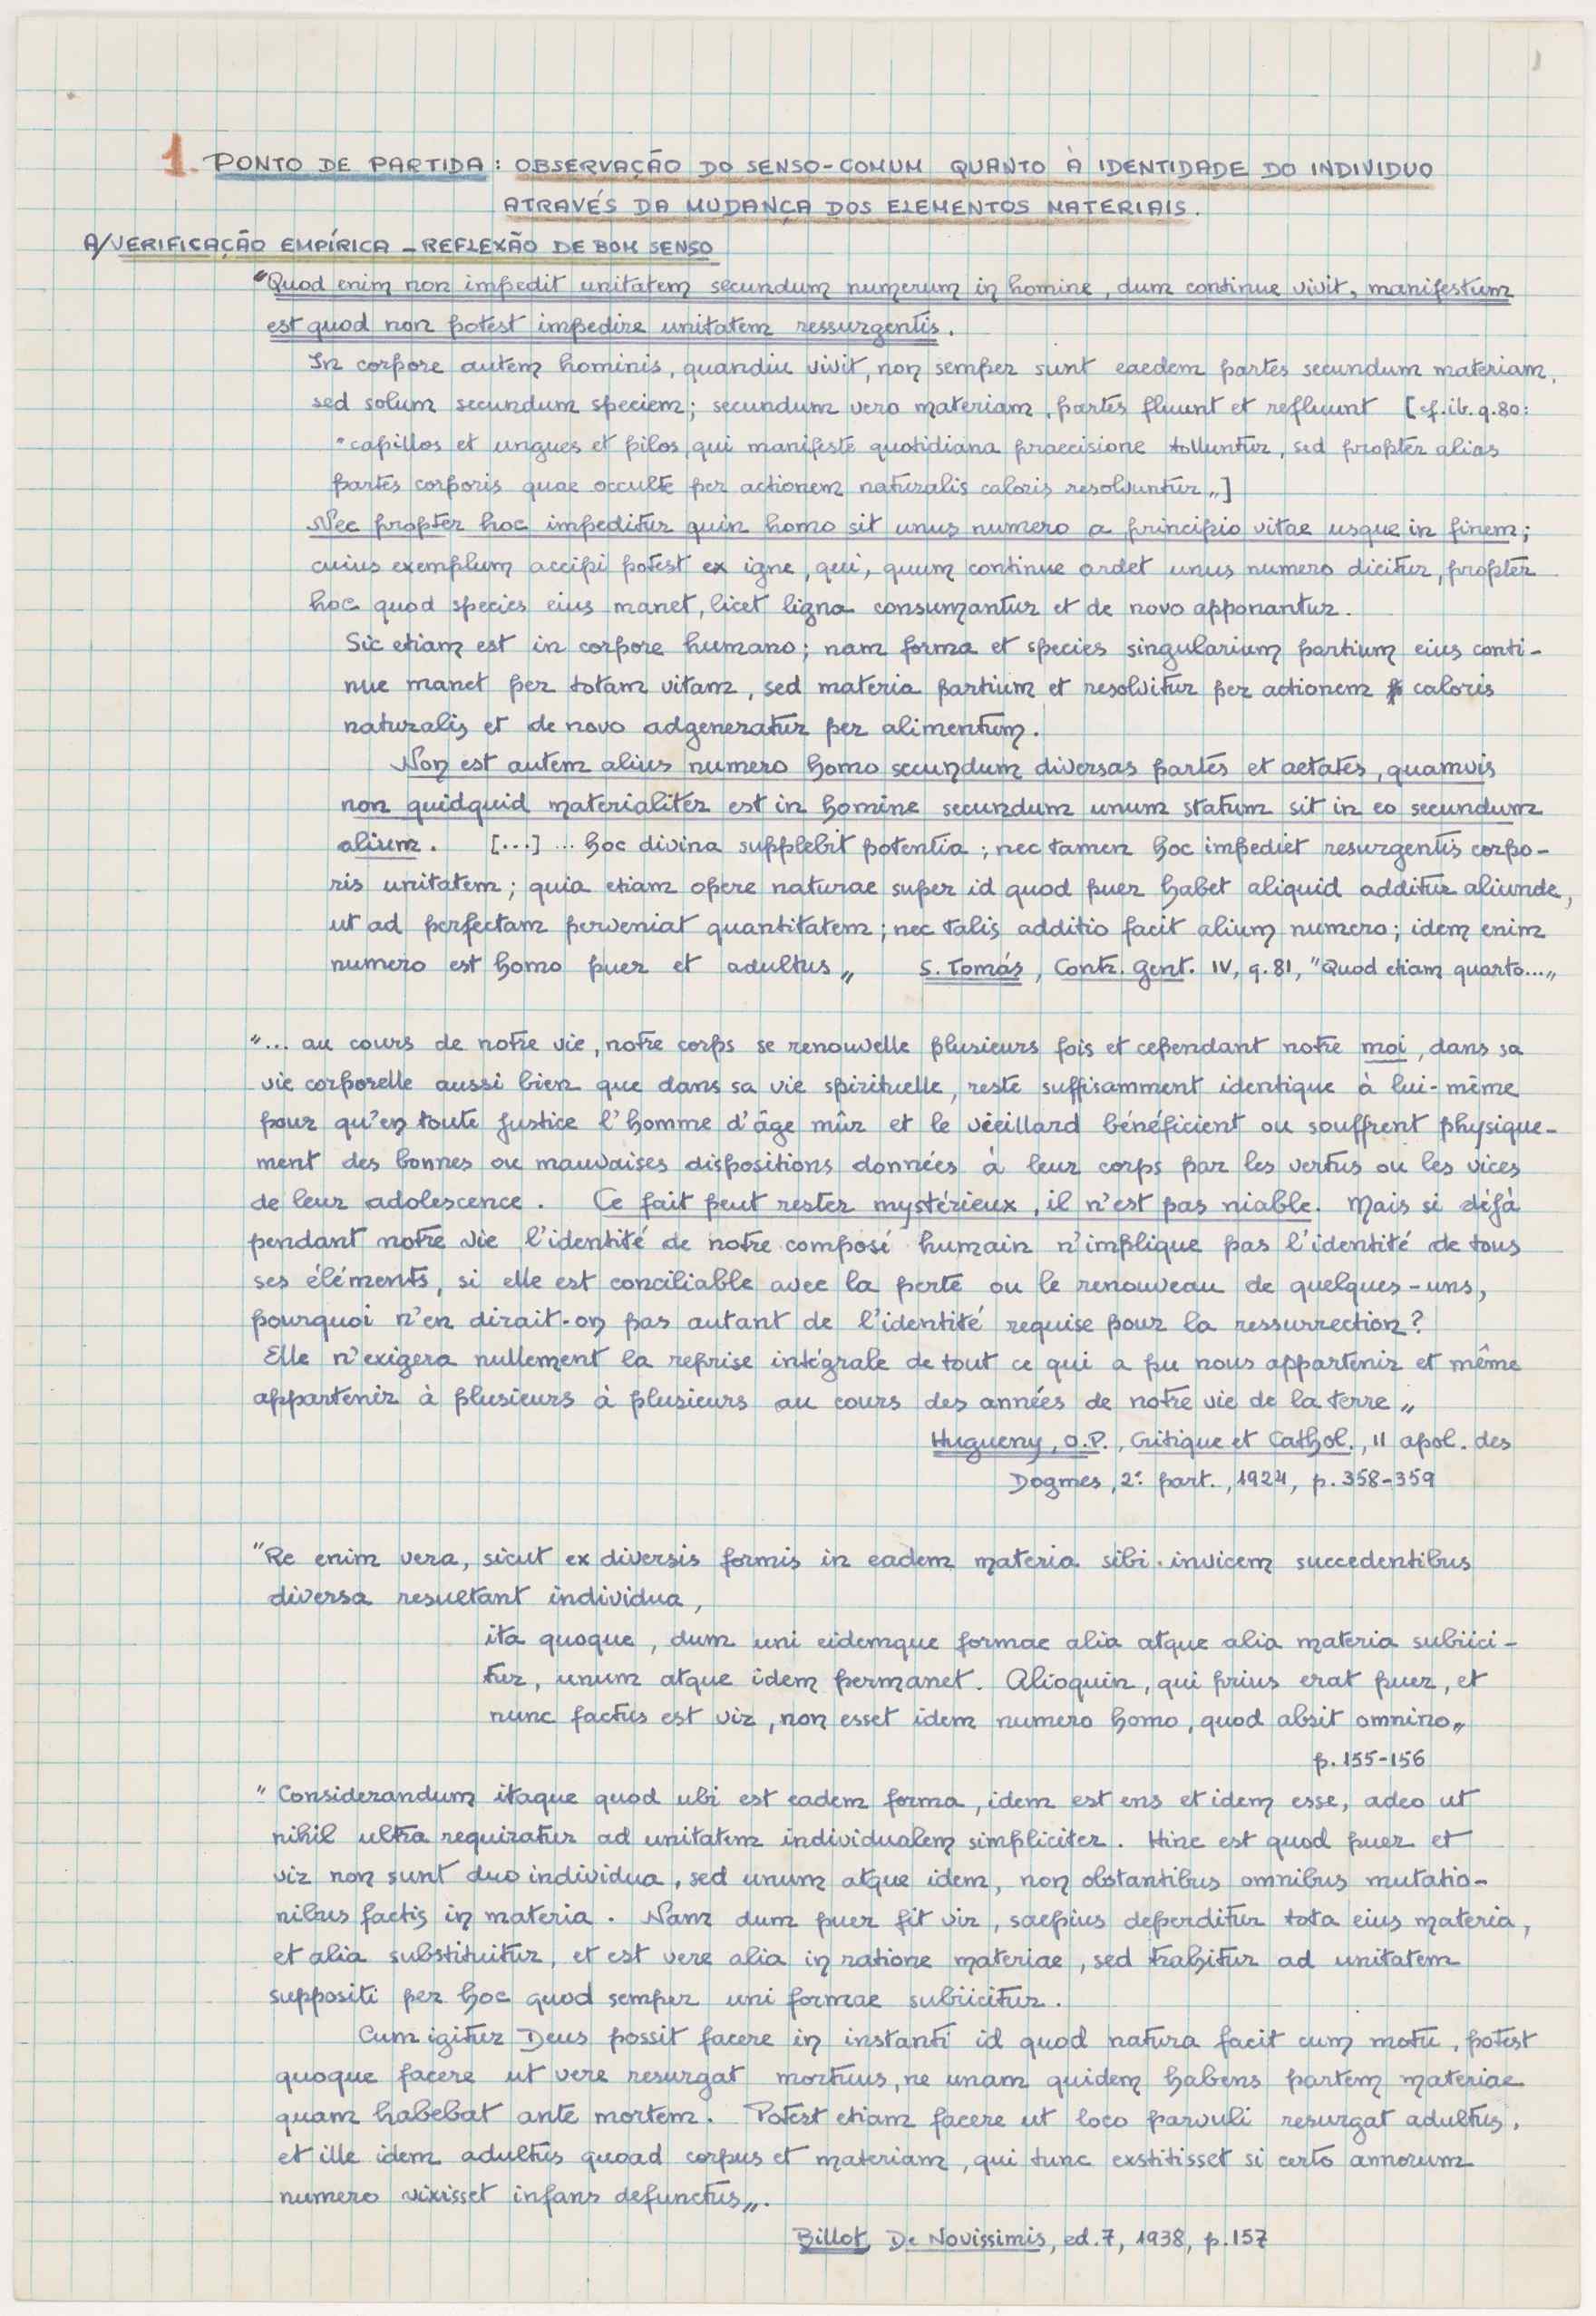 1. PONTO DE PARTIDA : OBSERVAÇÃO DO SENSO-COMUM QUANTO À IDENTIDADE DO INDIVIDUO
ATRAVÉS DA MUDANÇA DOS ELEMENTOS MATERIAIS.
A/ VERIFICAÇÃO EMPÍRICA – REFLEXÃO DE BOM SENSO
"Quod enim non impedit unitatem secundum numerum in homine, dum continue vivit, manifestum
est quod non potest impedire unitatem ressurgentis.
In corpore autem hominis, quandiu vivit, non semper sunt eaedem partes secundum materiam,
sed solum secundum speciem; secundum vero materiam, partes fluunt et refluunt [cf. ib. q. 80:
"capillos et ungues et pilos, qui manifeste quotidiana praecisione tolluntur, sed propter alias
partes corporis quae occulte per actionem naturalis caloris resolvuntur„]
Nec propter hoc impeditur quin homo sit unus numero a principio vitae usque in finem;
cuius exemplum accipi potest ex igne, qui, quum continue ardet unus numero dicitur, propter
hoc quod species eius manet, licet ligna consumantur et de novo apponantur.
Sic etiam est in corpore humano; nam forma et species singularium partium eius conti-
nue manet per totam vitam, sed materia partium et resolvitur per actionem caloris
naturalis et de novo adgeneratur per alimentum.
Non est autem alius numero homo secundum diversas partes et aetates, quamvis
non quidquid materialiter est in homine secundum unum statum sit in eo secundum
alium. [...] ... hoc divina supplebit potentia; nec tamen hoc impediet resurgentis corpo-
ris unitatem; quia etiam opere naturae super id quod puer habet aliquid additur aliunde,
ut ad perfectam perveniat quantitatem; nec talis additio facit alium numero; idem enim
numero est homo puer et adultus„ S. Tomás, Contr. Gent. IV, q. 81, "Quod etiam quarto...„
"... au cours de notre vie, notre corps se renouvelle plusieurs fois et cependant notre moi, dans sa
vie corporelle aussi bien que dans sa vie spirituelle, reste suffisamment identique à lui-même
pour qu'en toute justice l'homme d'âge mûr et le vieillard bénéficient ou souffrent physique-
ment des bonnes ou mauvaises dispositions données à leur corps par les vertus ou les vices
de leur adolescence. Ce fait peut rester mystérieux, il n'est pas niable. Mais si déjà
pendant notre vie l'identité de notre composé humain n'implique pas l'identité de tous
ses éléments, si elle est conciliable avec la perte ou le renouveau de quelques-uns,
pourquoi n'en dirait-on pas autant de l'identité requise pour la ressurrection?
Elle n'exigera nullement la reprise intégrale de tout ce qui a pu nous appartenir et même
appartenir à plusieurs à plusieurs au cours des années de notre vie de la terre„
Hugueny, O.P., Critique et Cathol., II apol. des
Dogmes, 2ª part., 1924, p. 358-359
"Re enim vera, sicut ex diversis formis in eadem materia sibi invicem succedentibus
diversa resultant individua,
ita quoque, dum uni eidemque formae alia atque alia materia subiici-
tur, unum atque idem permanet. Alioquin, qui prius erat puer, et
nunc factus est vir, non esset idem numero homo, quod absit omnino„
p. 155-156
"Considerandum itaque quod ubi est eadem forma, idem est ens et idem esse, adeo ut
nihil ultra requiratur ad unitatem individualem simpliciter. Hinc est quod puer et
vir non sunt duo individua, sed unum atque idem, non obstantibus omnibus mutatio-
nibus factis in materia. Nam dum puer fit vir, saepius deperditur tota eius materia,
et alia substituitur, et est vere alia in ratione materiae, sed trahitur ad unitatem
suppositi per hoc quod semper uni formae subiicitur.
Cum igitur Deus possit facere in instanti id quod natura facit cum motu, potest
quoque facere ut vere resurgat mortuus, ne unam quidem habens partem materiae
quam habebat ante mortem. Potest etiam facere ut loco parvuli resurgat adultus,
et ille idem adultus quoad corpus et materiam, qui tunc exstitisset si certo annorum
numero vixisset infans defunctus„.
Billot, De Novissimis, ed. 7, 1938, p. 157